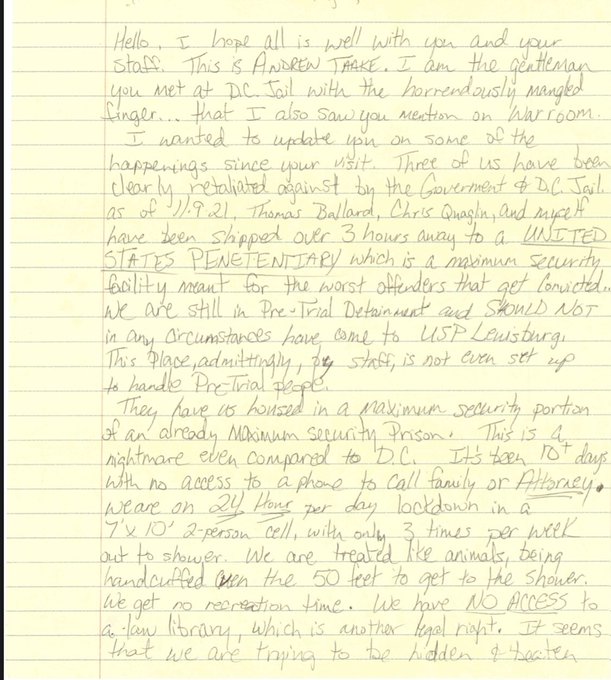 Hello, I hope all is well with you and your
staff. This is ANDREW TAAKE. I am the gentleman
you met at D.C. Jail with the horrendously mangled
finger... that I also saw you mention on Warroom.
I wanted to update you on some of the
happenings since your visit. Three of us have been
clearly retaliated against by the Goverment & D.C. Jail.
as of 11.9.21, Thomas Ballard, Chris Quaglin, and myself
have been shipped over 3 hours away to a UNITED
STATES PENETENTIARY which is a maximum security
facility meant for the worst offenders that get convicted..
We are still in Pre-Trial Detainment and SHOULD NOT
in any circumstances have come to USP Lewisburg.
This Place, admittingly, by staff, is not even set up
to handle PreTrial people.
They have us housed in a maximum security portion
of an already Maximum security Prison. This is a
nightmare even compared to D.C. It's been 10+ days
with no access to a phone to call family or Attorney.
we are on 24 Hour per day lockdown in a
7'x10' 2-person cell, with only 3 times per week
out to shower. We are treated like animals, being
handcuffed even the 50 feet to get to the shower.
We get no recreation time. We have NO ACCESS to
a law library, which is another legal right. It seems
that we are trying to be hidden & beaten